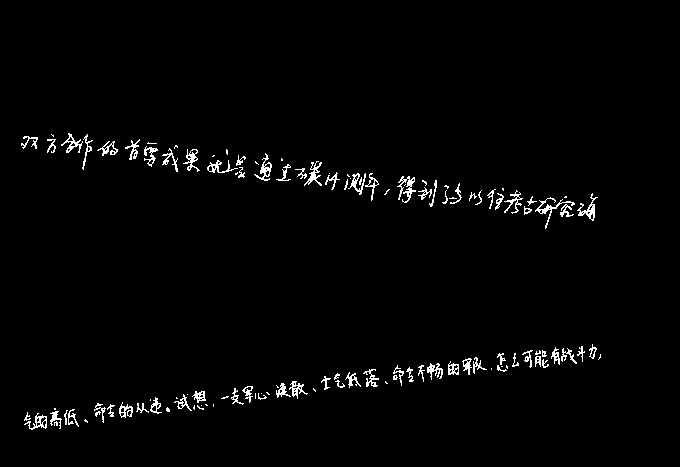 双方合作的首要成果就是通过碳14测年,得到了与以往考古研究确
气的高低、命令的从违。试想,一支军心涣散、士气低落、命令不畅的军队,怎么可能有战斗力,